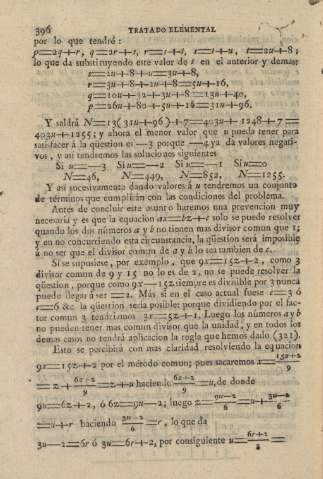 396 TRATADO ELEMENTAL
por lo que tendré:
p=2q+r, q=2r+s, r=s+t, s=t+u, t=2u+8;
lo que da substituyendo este valor de t en el anterior y demas:
s=2u+8+u=3u+8,
r=3u+8+2u+8=5u+16,
q=10u+32+3u+8=13u+40,
p=26u+80+5u+16=31u+96.
Y saldrá N=13(31u+96)+7=403u+1248+7=
403u+1255; y ahora el menor valor que u pueda tener para
satisfacer á la qüestion es -3 porque -4 ya da valores negati-
vos, y asi tendremos las soluciones siguientes
Si u=-3 Si u=-2 Si u=-1 Si u=0
N=46, N=449, N=852, N=1255.
Y así sucesivamente dando valores á u tendremos un conjunto
de términos que cumplirán con las condiciones del problema.
Antes de concluir este asunto haremos una prevencion muy
necesaria y es que la equacion ax=bz+c solo se puede resolver
quando los dos números a y b no tienen mas divisor comun que 1;
y en no concurriendo esta circunstancia, la qüestion será imposible
á no ser que el divisor comun de a y b lo sea tambien de c.
Si se supusiese, por exemplo, que 9x=15z+2, como 3
divisor comun de 9 y 15 no lo es de 2, no se puede resolver la
qüestion, porque como 9x-15z siempre es divisible por 3 nunca
puede llegar á ser =2. Mas si en el caso actual fuese c=3 ó
c=6 &c la qüestion seria posible; porque dividiendo por el fac-
tor comun 3 tendriamos 3x=5z+1. Luego los números a y b
no pueden tener mas comun divisor que la unidad, y en todos los
demas casos no tendrá aplicacion la regla que hemos dado (321).
Esto se percibirá con mas claridad resolviendo la equacion
9x=15z+2 por el método comun; pues sacaremos x=(15z+2)/9
=z+(6z+2)/9=z+u haciendo (6z+2)/9=u, de donde
9u=6z+2, ó 6z=9u-2; luego z=(9u-2)/6=u+(3u-2)/6
=u+r haciendo (3u-2)/6=r, lo que da
3u-2=6r ó 3u=6r+2, por consiguiente u=(6r+2)/3=